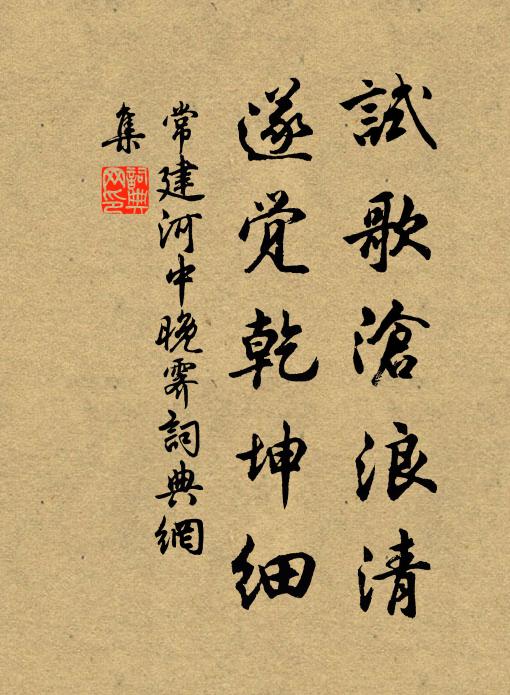 試歌滄浪清
遂覺乾坤細
常建河中晚霽詞典網
集
詞典
网印